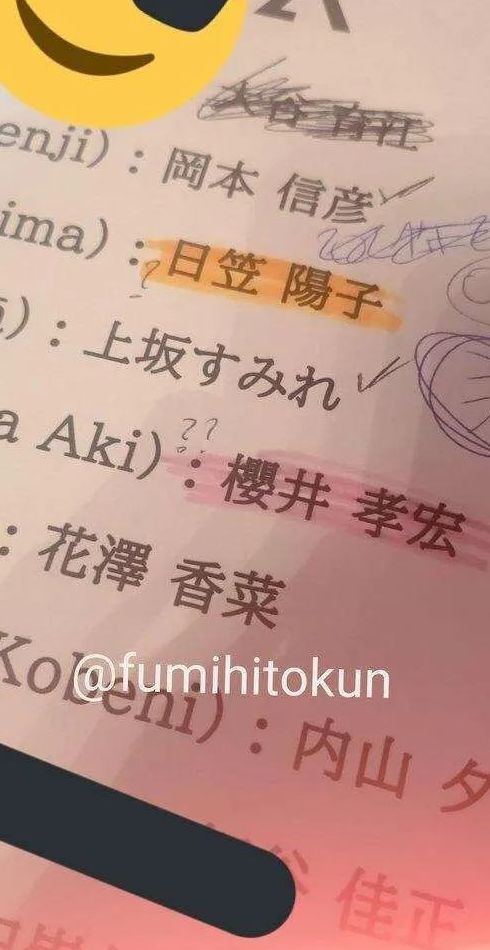 enji) : 岡本 信彦
ima) : 日笠 陽子
) : 上坂すみれ
??
a Aki) : 櫻井 孝宏
: 花澤 香菜
@fumihitokun
Kobeni) : 内山 夕
佳正